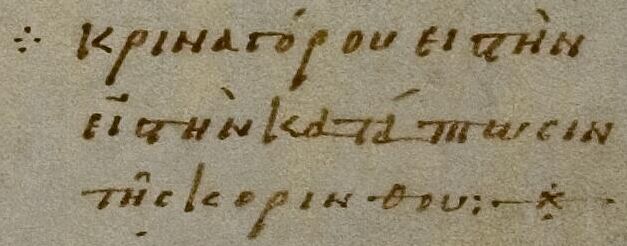 ⁘ κριναγόρου εις τὴν
εἰς τὴν κατάπτωσιν
τῆς κορινθου:-※